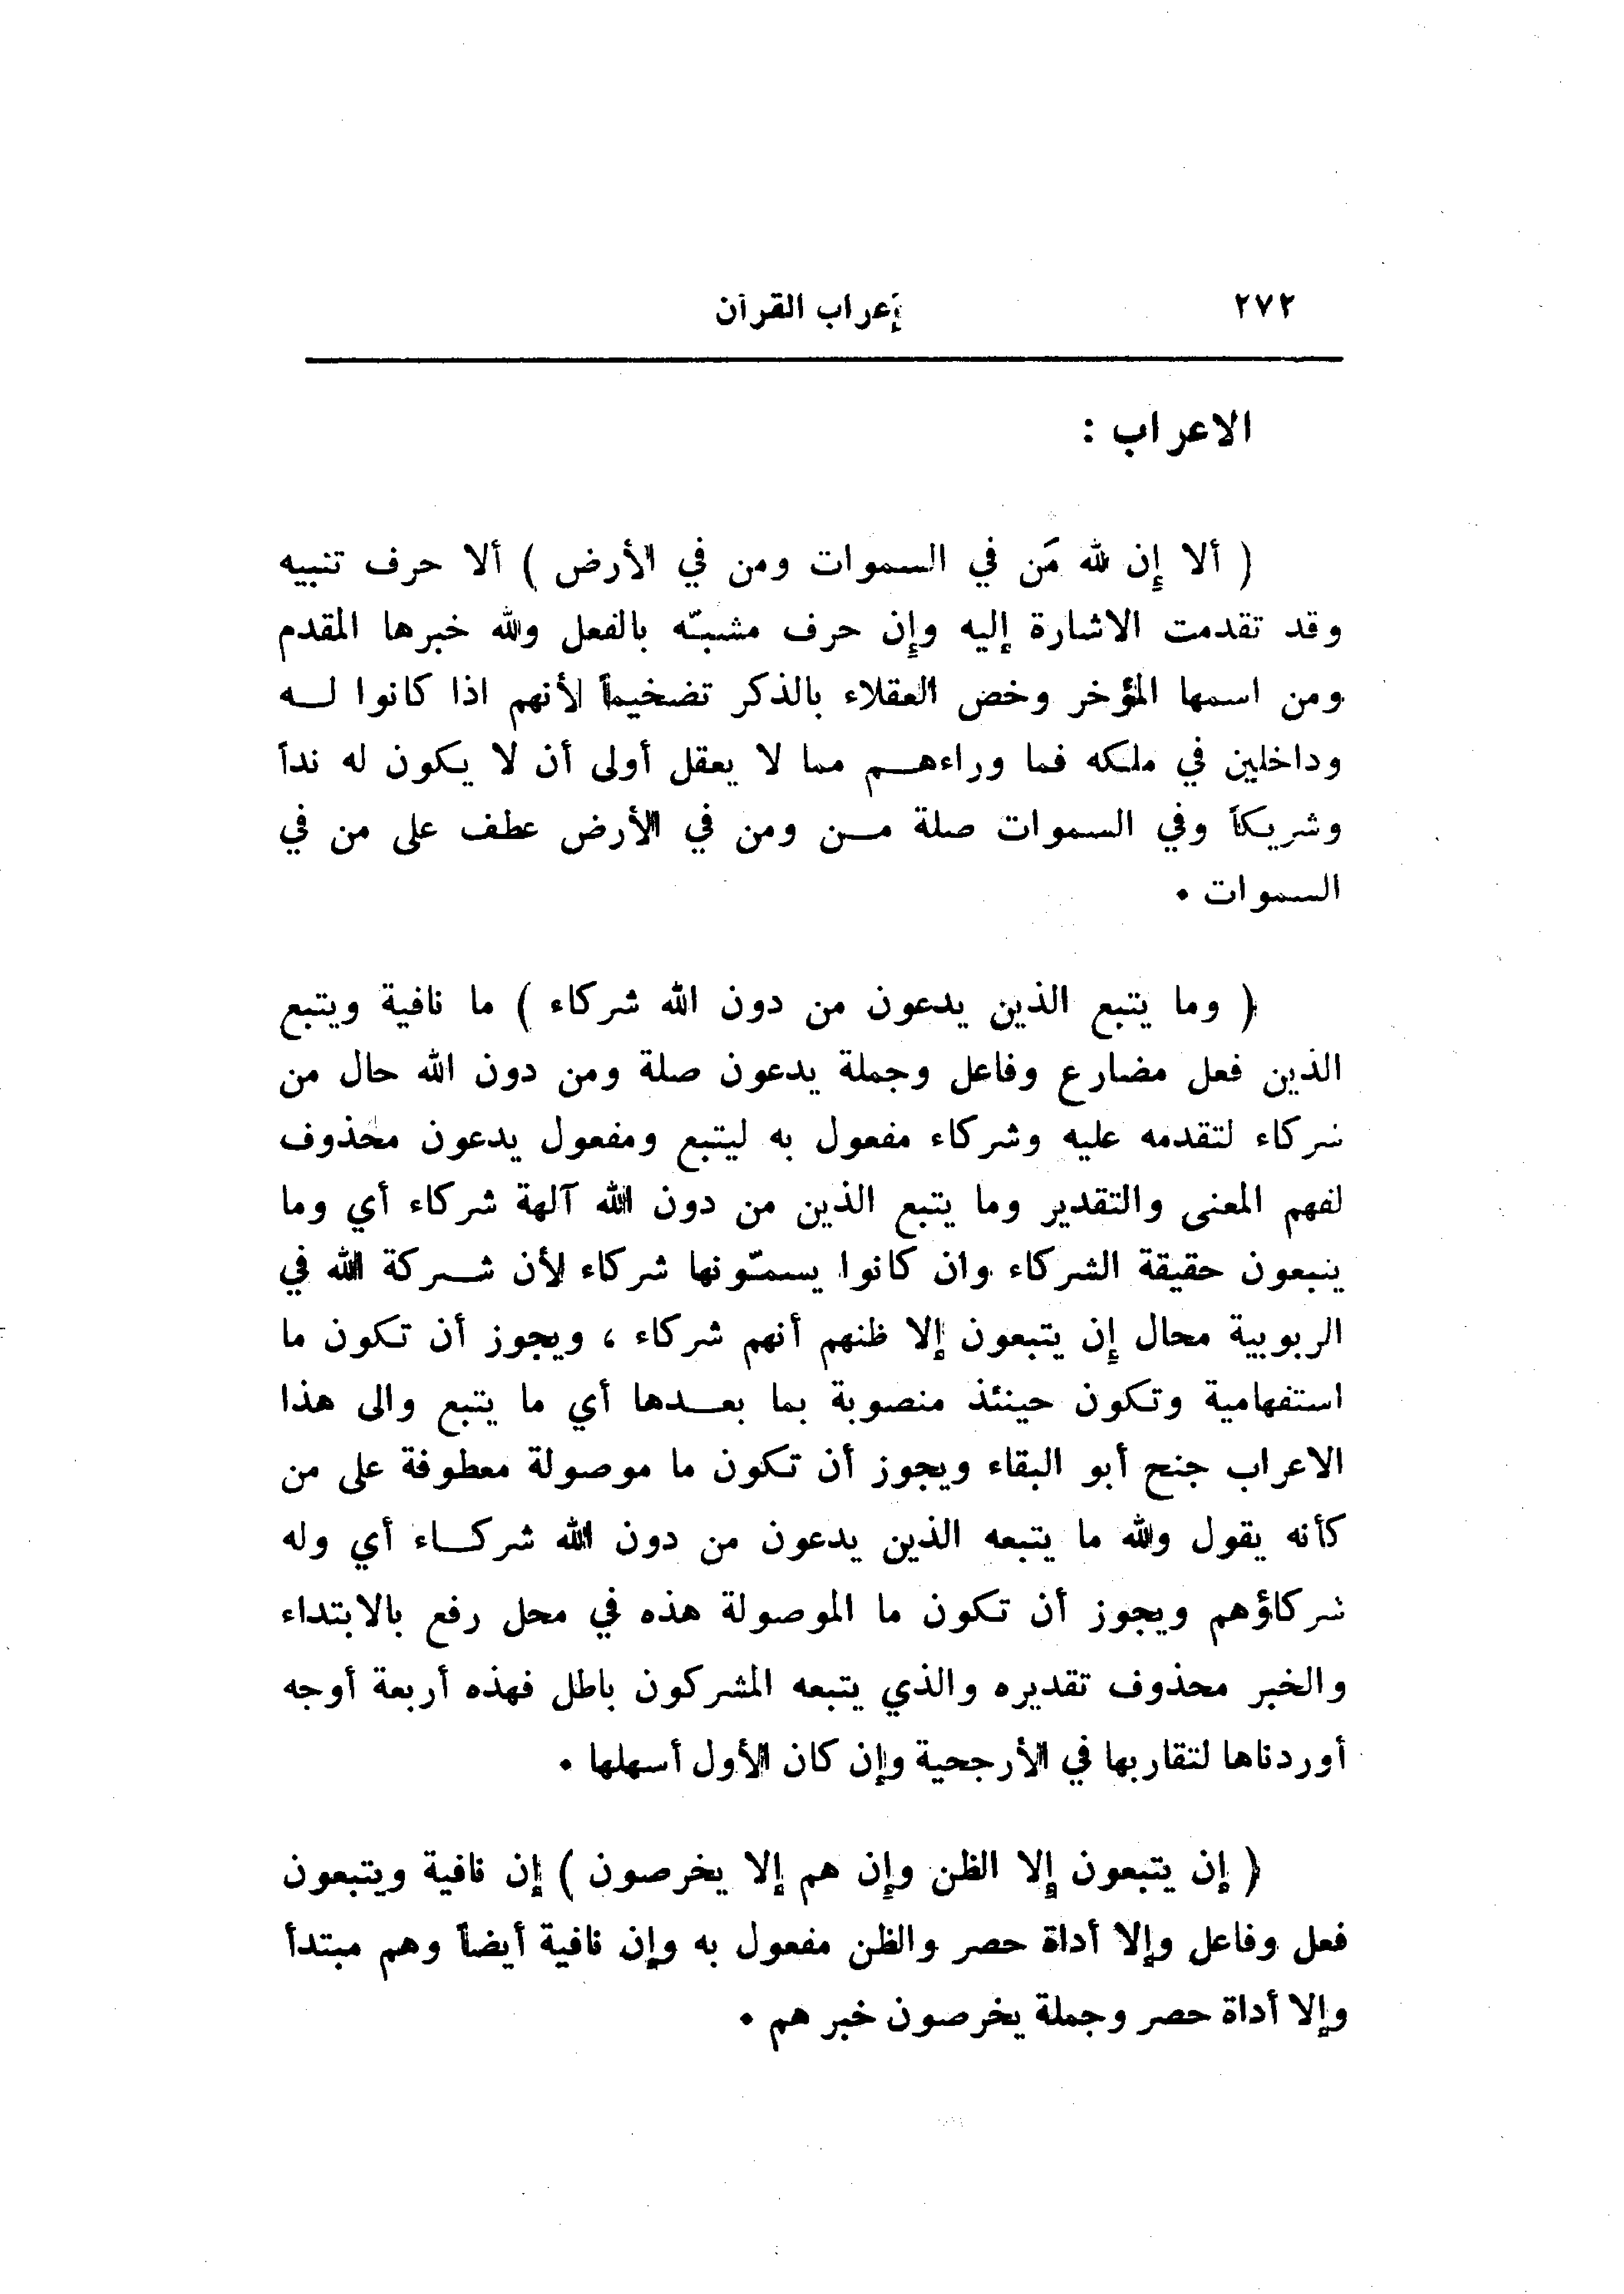 ٢٧٢ إعراب القرآن
الاعراب :
( ألا إن لله مَن في السموات ومن في الأرض ) ألا حرف تنبيه
وقد تقدمت الاشارة إليه وإن حرف مشبّه بالفعل ولله خبرها المقدم
ومن اسمها المؤخر وخص العقلاء بالذكر تضخيماً لأنهم اذا كانوا لـه
وداخلين في ملكه فما وراءهـم مما لا يعقل أولى أن لا يكون له نداً
وشريكاً وفي السموات صلة مـن ومن في الأرض عطف على من في
السموات .
( وما يتبع الذين يدعون من دون الله شركاء ) ما نافية ويتبع
الذين فعل مضارع وفاعل وجملة يدعون صلة ومن دون الله حال من
شركاء لتقدمه عليه وشركاء مفعول به ليتبع ومفعول يدعون محذوف
لفهم المعنى والتقدير وما يتبع الذين من دون الله آلهة شركاء أي وما
يتبعون حقيقة الشركاء وان كانوا يسمّونها شركاء لأن شـركة الله في
الربوبية محال إن يتبعون إلا ظنهم أنهم شركاء ، ويجوز أن تكون ما
استفهامية وتكون حينئذ منصوبة بما بعـدها أي ما يتبع والى هذا
الاعراب جنح أبو البقاء ويجوز أن تكون ما موصولة معطوفة على من
كأنه يقول ولله ما يتبعه الذين يدعون من دون الله شركـاء أي وله
شركاؤهم ويجوز أن تكون ما الموصولة هذه في محل رفع بالابتداء
والخبر محذوف تقديره والذي يتبعه المشركون باطل فهذه أربعة أوجه
أوردناها لتقاربها في الأرجحية وإن كان الأول أسهلها .
( إن يتبعون إلا الظن وإن هم إلا يخرصون ) إن نافية ويتبعون
فعل وفاعل وإلا أداة حصر والظن مفعول به وإن نافية أيضاً وهم مبتدأ
وإلا أداة حصر وجملة يخرصون خبر هم .